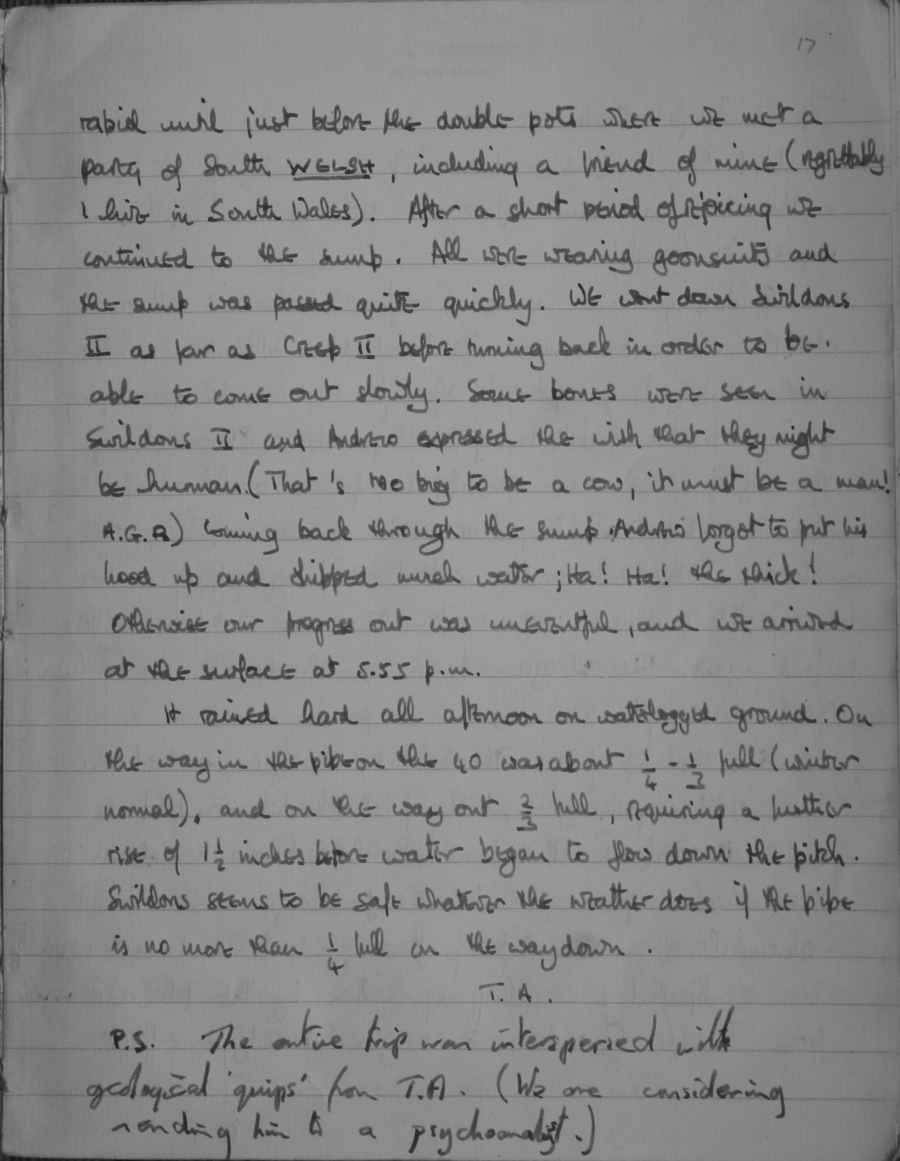 17
rapid until just before the double pots where we met a
party of South WELSH, including a friend of mine (regrettably
I live in South Wales). After a short period of rejoicing we
continued to the sump. All were wearing goonsuits and
the sump was passed quite quickly. We went down Swildons
II as far as Creep II before turning back in order to be.
able to come out slowly. Some bones were seen in
Swildons II and Andrew expressed the wish that they might
be human. (That's too big to be a cow, it must be a man!
A.G.R) Coming back through the sump Andrew forgot to put his
hood up and shipped much water; Ha! Ha! the thick!
Otherwise our progress out was uneventful, and we arrived
at the surface at 5.55 p.m.
It rained hard all afternoon on waterlogged ground. On
the way in the pipe on the 40 was about 1/4 - 1/3 full (winter
normal), and on the way out 2/3 full, requiring a further
rise of 1 1/2 inches before water began to flow down the pitch.
Swildons seems to be safe whatever the weather does if the pipe
is no more than 1/4 full on the way down.
T.A.
P.S. The entire trip was interspersed with
geological 'quips' from T.A. (We are considering
sending him to a psychoanalyst.)